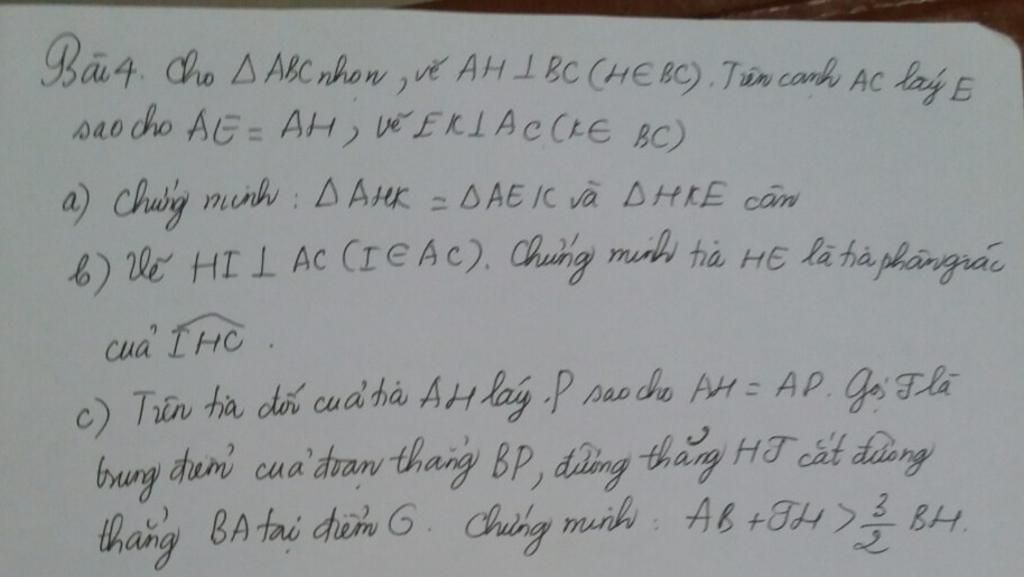 Bài 4. Cho △ABC nhọn, vẽ AH⊥BC (H∈BC). Trên cạnh AC lấy E
sao cho AE = AH, vẽ EK⊥AC (K∈ BC)
a) Chứng minh : △AHK = △AEK và △HKE cân
b) Vẽ HI⊥AC (I∈AC). Chứng minh tia HE là tia phân giác
của \widehat{IHC} .
c) Trên tia đối của tia AH lấy P sao cho AH = AP. Gọi J là
trung điểm của đoạn thẳng BP, đường thẳng HJ cắt đường
thẳng BA tại điểm G. Chứng minh : AB + JH > 3/2 BH.